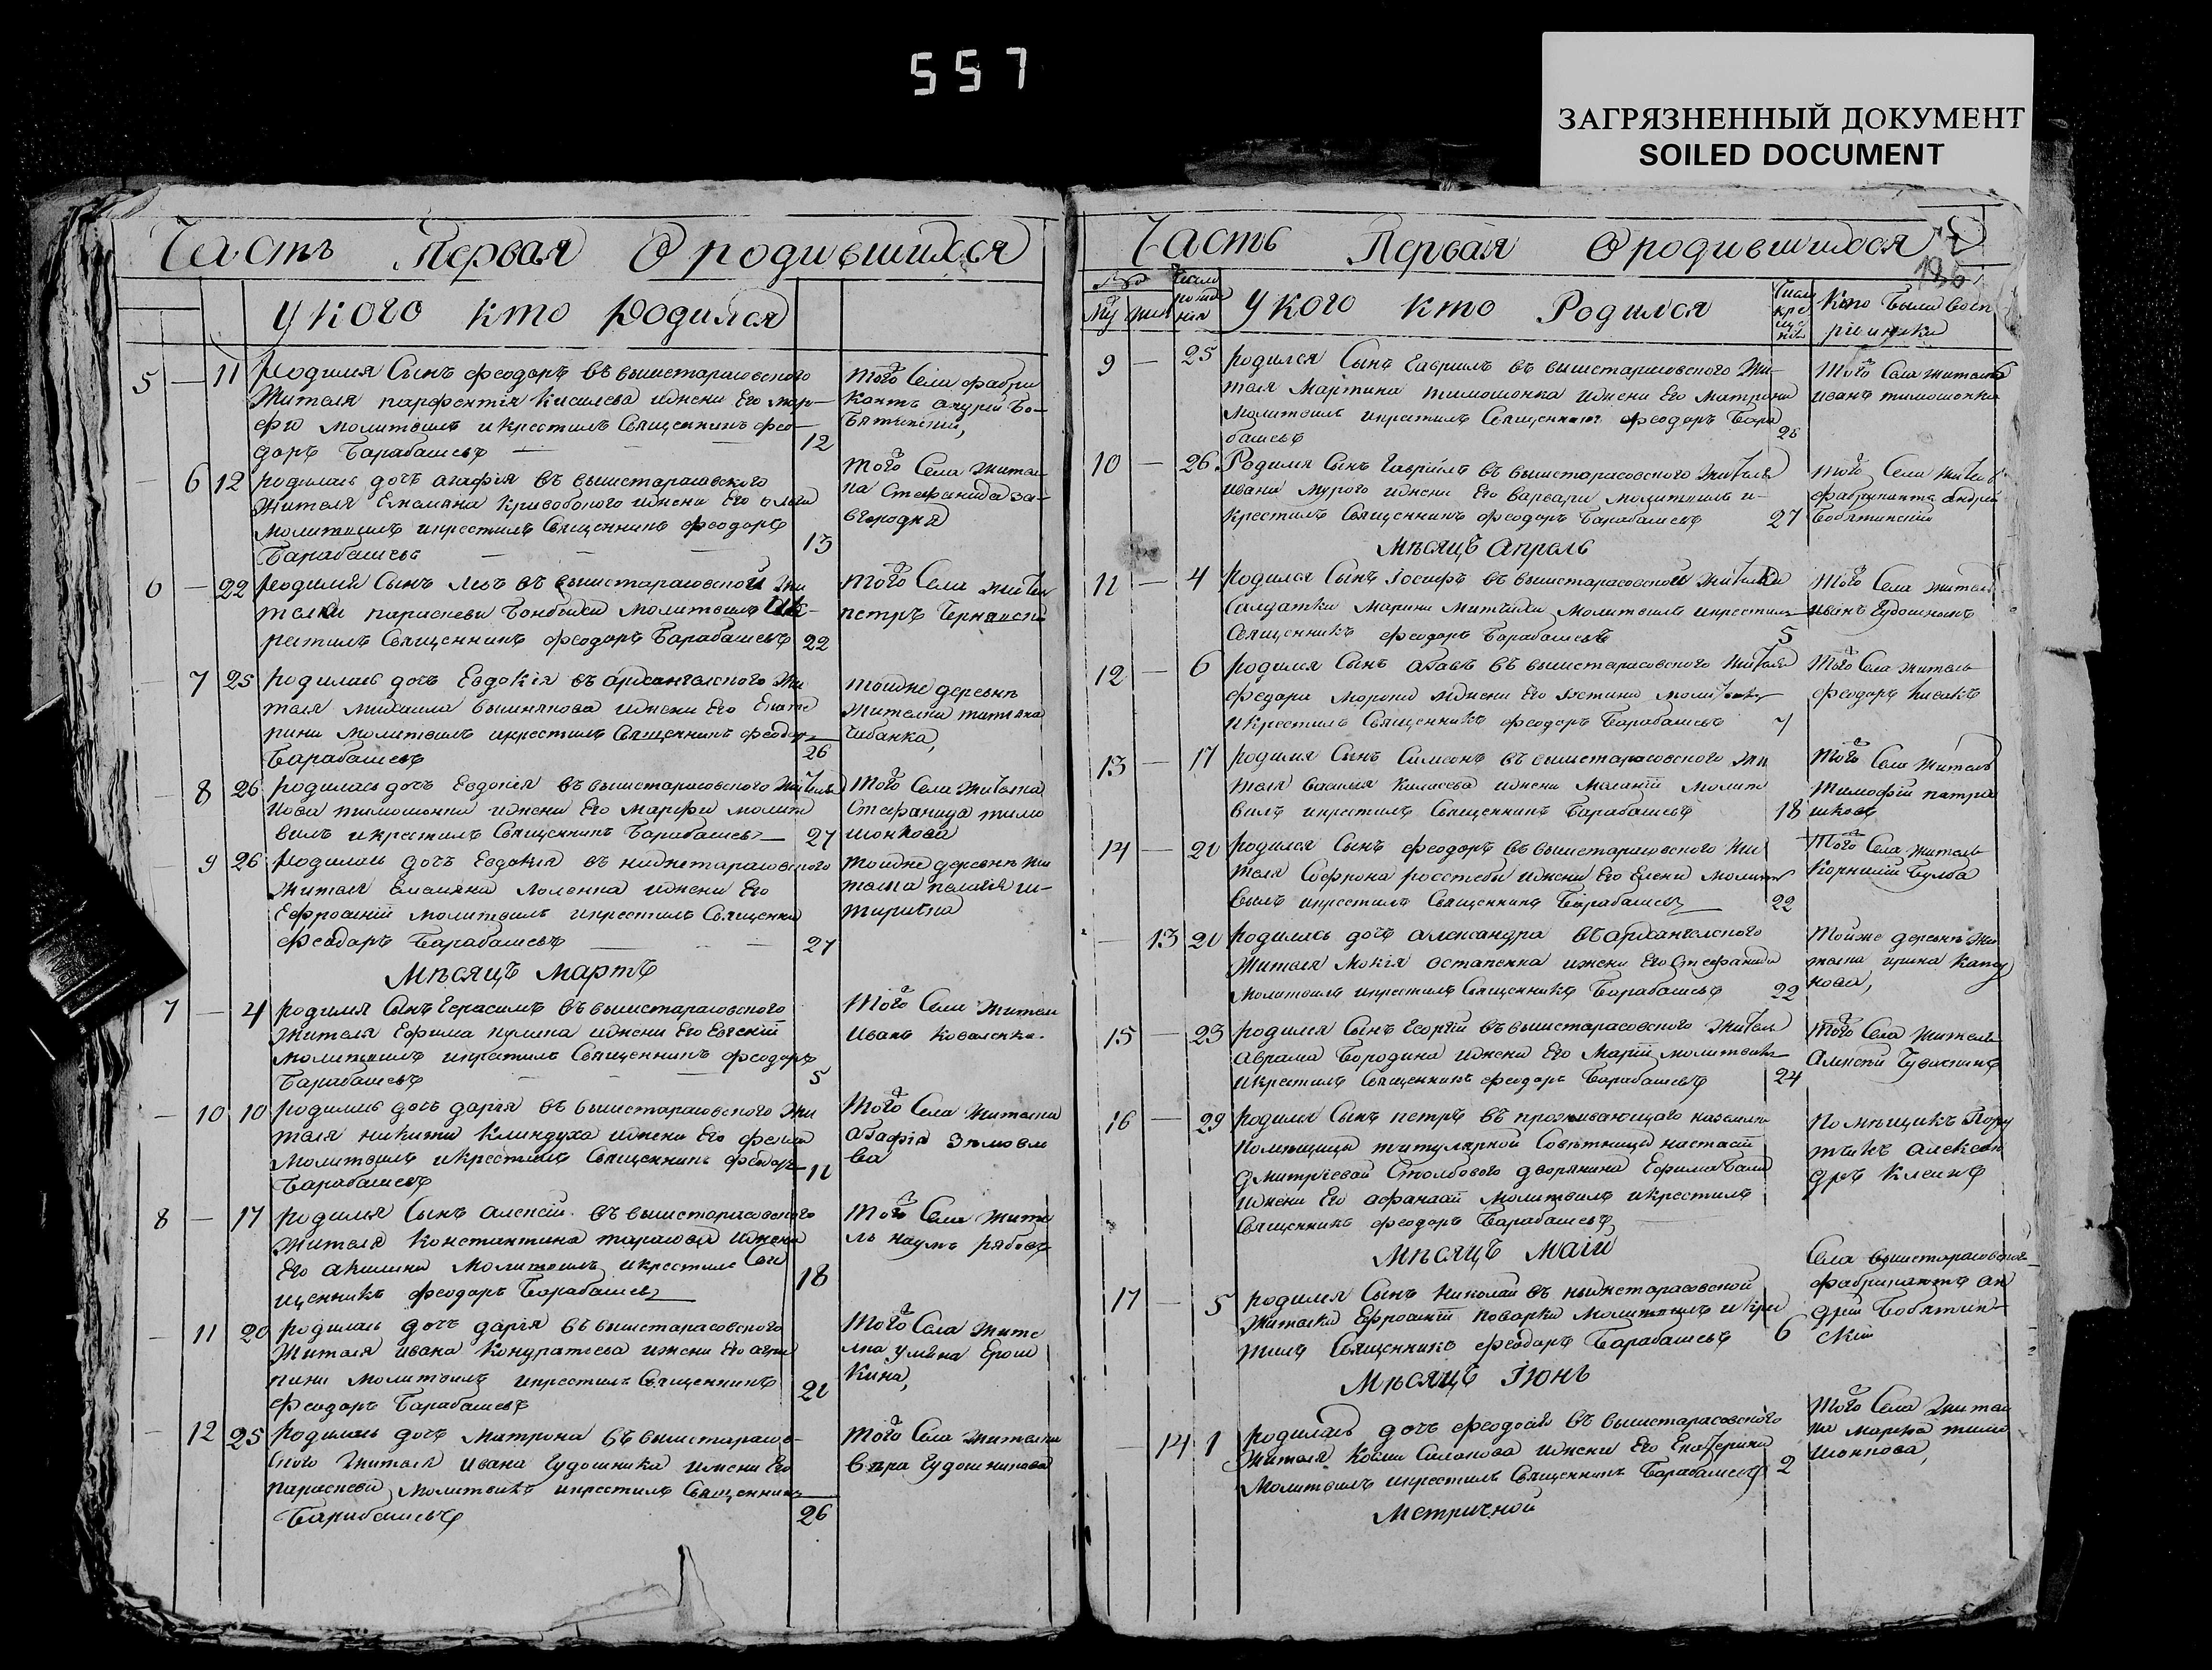 557
ЗАГРЯЗНЕННЫЙ ДОКУМЕНТ
SOILED DOCUMENT
Часть Первая О родившихся
У кого кто родился
5 — 11 Родился Сынъ феодоръ въ вышетарасовского
Жителя парфентія Киселева ижени Его мар-
фи молитвилъ и крестилъ Священникъ фео-
доръ Барабашевъ 12
того Села фабри
кантъ андрей Бо-
бятинский,
— 6 12 родилась дочъ агафія въ вышетарасовского
Жителя Емельяна Кривобокого ижени Его
молитвилъ икрестилъ Священникъ феодоръ
Барабашевъ 13
того Села жител
ка Стефанида за-
вгородня
6 — 22 Родился Сынъ левъ въ вышетарасовской жи
телки параскеви молитвилъ ик-
рестилъ Священникъ феодоръ Барабашевъ 22
того Села жител
петръ
— 7 25 родилась дочъ Евдокія въ архангелского жи
теля михаила вишнякова ижени Его Екате
рини молитвилъ икрестилъ Священникъ феодоръ
Барабашевъ 26
тойже деревнѣ
жителка татяна
Чабанка,
— 8 26 родилась дочъ Евдокія въ вышетарасовского жителя
Іова тимошенки ижени Его Марфи молит
вилъ икрестилъ Священникъ Барабашевъ 27
того Села жителка
Стефанида тимо
шенкова
— 9 26 Родилась дочъ Евдокія въ нижнетарасовского
жителя Емельяна ижени Его
Ефросиніи молитвилъ икрестилъ Священник
феодоръ Барабашевъ 27
тойже деревнѣ жи
телка пелагія
Мѣсяцъ мартъ
7 — 4 родился Сынъ Герасимъ въ вышетарасовского
Жителя Ефима кулика ижени Его Евгеніи
молитвилъ икрестилъ Священникъ феодоръ
Барабашевъ 5
того Села жител
Иванъ Коваленко.
— 10 10 родилась дочъ дарія въ вышетарасовского жи
теля никити Клиндуха ижени Его
молитвилъ икрестилъ Священникъ феодоръ
Барабашевъ 11
того Села жителка
агафія
ва
8 — 17 родился Сынъ алексій въ вышетарасовского
жителя Константина тарасова ижени
Его акилини молитвилъ икрестилъ Свя
щенникъ феодоръ Барабашевъ 18
того Села жите
ль наумъ рябовъ
— 11 20 родилась дочъ дарія въ вышетарасовского
жителя ивана Кондратьева ижени Его агри
пини молитвилъ икрестилъ Священникъ
феодоръ Барабашевъ 21
того Села жите
лка уляна Ерош
кина,
— 12 25 Родилась дочъ Матрона въ вышетарасов-
ского жителя Ивана Гудошника ижени Его
параскеви молитвилъ икрестилъ Священникъ
Барабашевъ 26
того Села жителка
вѣра Гудошникова
Часть Первая О родившихся
186
№ Число рожде нія У кого кто Родился Число кре ще нія Кто были восп
му жен ріиники
9 — 25 родился Сынъ Гавриилъ въ вышетарасовского жи-
теля Мартина тимошенка ижени Его матрони
молитвилъ икрестилъ Священникъ феодоръ Бара
башевъ 26
того Села житель
иванъ тимошенко
10 — 26 Родился Сынъ Гавріилъ въ вышетарасовского жителя
ивана мурого ижени Его варвари молитвилъ и-
крестилъ Священникъ феодоръ Барабашевъ 27
того Села житель
фабрикантъ андрей
Бобятинский
Мѣсяцъ апрель
11 — 4 родился Сынъ Іосифъ въ вышетарасовской жителки
Салдатки марини молитвилъ икрестилъ
Священникъ феодоръ Барабашевъ 5
того Села житель
иванъ Гудошникъ
12 — 6 родился Сынъ въ вышетарасовского жителя
федора мороки ижени Его Іустини молитвилъ
икрестилъ Священникъ феодоръ Барабашевъ 7
того Села житель
феодоръ
13 — 17 родился Сынъ Симеонъ въ вышетарасовского жи
теля василія Киласева ижени меланіи молит
вилъ икрестилъ Священникъ Барабашевъ 18
того Села житель
тимофій патра
шковъ
14 — 21 родился Сынъ феодоръ въ вышетарасовского жи
теля Софрона ижени Его Елени молит
вилъ икрестилъ Священникъ Барабашевъ 22
того Села житель
Корнилій Булба
— 13 21 родилась дочъ александра въ архангелского
жителя мокія остапенка ижени Его Стефаниди
молитвилъ икрестилъ Священникъ Барабашевъ 22
тойже деревнѣ жи
телка ирина
нова,
15 — 23 родился Сынъ Георгій въ вышетарасовского жителя
аврама Бородина ижени Его Маріи молитвилъ
икрестилъ Священникъ феодоръ Барабашевъ 24
того Села житель
алексій
16 — 29 родился Сынъ петръ въ проживающаго
помѣщици титулярной Совѣтници настасіи
дмитріевой Столбового дворянина Ефима
ижени Его афанасіи молитвилъ икрестилъ
Священникъ феодоръ Барабашевъ
помѣщикъ Пору
тчикъ алексан
дръ клеинъ
Мѣсяцъ маіи
17 — 5 родился Сынъ николай въ нижнетарасовской
жителки Ефросиніи поварки молитвилъ икрес
тилъ Священникъ феодоръ Барабашевъ 6
Села вышетарасовского
фабрикантъ ан
дрей Бобятин-
скій
Мѣсяцъ Іюнь
— 14 1 родилась дочъ феодосія въ вышетарасовского
жителя Косми Силакова ижени Его Екатерини
молитвилъ икрестилъ Священникъ Барабашевъ 2
того Села жител
ка марфа тимо
шенкова,
Метричной